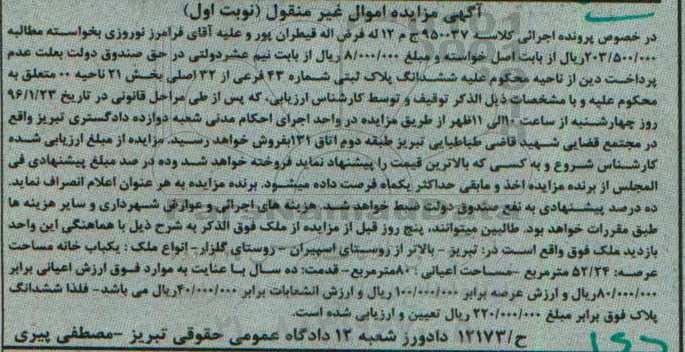 آگهی مزایده اموال غیر منقول (نوبت اول)
در خصوص پرونده اجرائی کلاسه ۹۵۰۰۳۷ج م ۱۲ له فرض اله قیطران پور و علیه آقای فرامرز نوروزی بخواسته مطالبه
۲۰۳/۵۰۰/۰۰۰ریال از بابت اصل خواسته و مبلغ ۸/۰۰۰/۰۰۰ ریال از بابت نیم عشردولتی در حق صندوق دولت بعلت عدم
پرداخت دین از ناحیه محکوم علیه ششدانگ پلاک ثبتی شماره ۴۳ فرعی از ۳۲ اصلی بخش ۲۱ ناحیه ۰۰ متعلق به
محکوم علیه و با مشخصات ذیل الذکر توقیف و توسط کارشناس ارزیابی، که پس از طی مراحل قانونی در تاریخ ۹۶/۱/۲۳
روز چهارشنبه از ساعت ۱۰الی ۱۱ظهر از طریق مزایده در واحد اجرای احکام مدنی شعبه دوازده دادگستری تبریز واقع
در مجتمع قضایی شهید قاضی طباطبایی تبریز طبقه دوم اتاق ۱۳۱بفروش خواهد رسید. مزایده از مبلغ ارزیابی شده
کارشناس شروع و به کسی که بالاترین قیمت را پیشنهاد نماید فروخته خواهد شد وده در صد مبلغ پیشنهادی فی
المجلس از برنده مزایده اخذ و مابقی حداکثر یکماه فرصت داده میشود. برنده مزایده به هر عنوان اعلام انصراف نماید.
ده درصد پیشنهادی به نفع صندوق دولت ضبط خواهد شد. هزینه های اجرائی و عوارض شهرداری و سایر هزینه ها
طبق مقررات خواهد بود. طالبین میتوانند، پنج روز قبل از مزایده از ملک فوق الذکر به شرح ذیل با هماهنگی این واحد
بازدید ملک فوق واقع است در: تبریز - بالاتر از روستای اسپیران - روستای گلزار-انواع ملک : یکباب خانه مساحت
عرصه: ۵۲/۲۴ مترمربع -مساحت اعیانی :۸۰مترمربع- قدمت: ده سال با عنایت به موارد فوق ارزش اعیانی برابر
۸۰/۰۰۰/۰۰۰ریال و ارزش عرصه برابر ۱۰۰/۰۰۰/۰۰۰ ریال و ارزش انشعابات برابر ۴۰/۰۰۰/۰۰۰ریال می باشد- فلذا ششدانگ
پلاک فوق برابر مبلغ ۲۲۰/۰۰۰/۰۰۰ ریال تعیین و ارزیابی شده است.
ح/۱۲۱۷۳ دادورز شعبه ۱۲ دادگاه عمومی حقوقی تبریز -مصطفی پیری